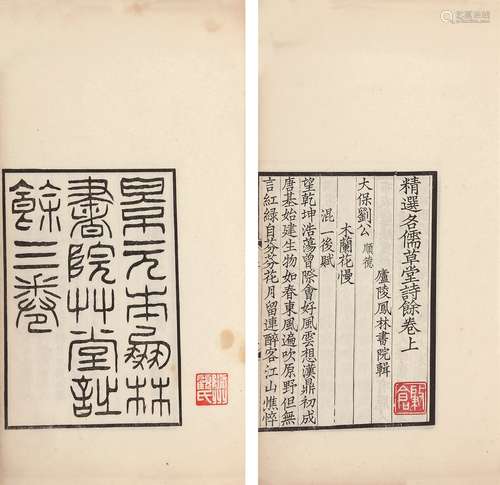 景元本鳳林
書院艸堂詩
餘三卷
精選名儒草堂詩餘卷上
廬陵鳳林書院輯
大保劉公 順德
木蘭花慢
混一後賦
望乾坤浩蕩曾際會好風雲想漢鼎初成
唐基始建生物如春東風遍吹原野但無
言紅綠自芬芬花月留連醉客江山憔悴